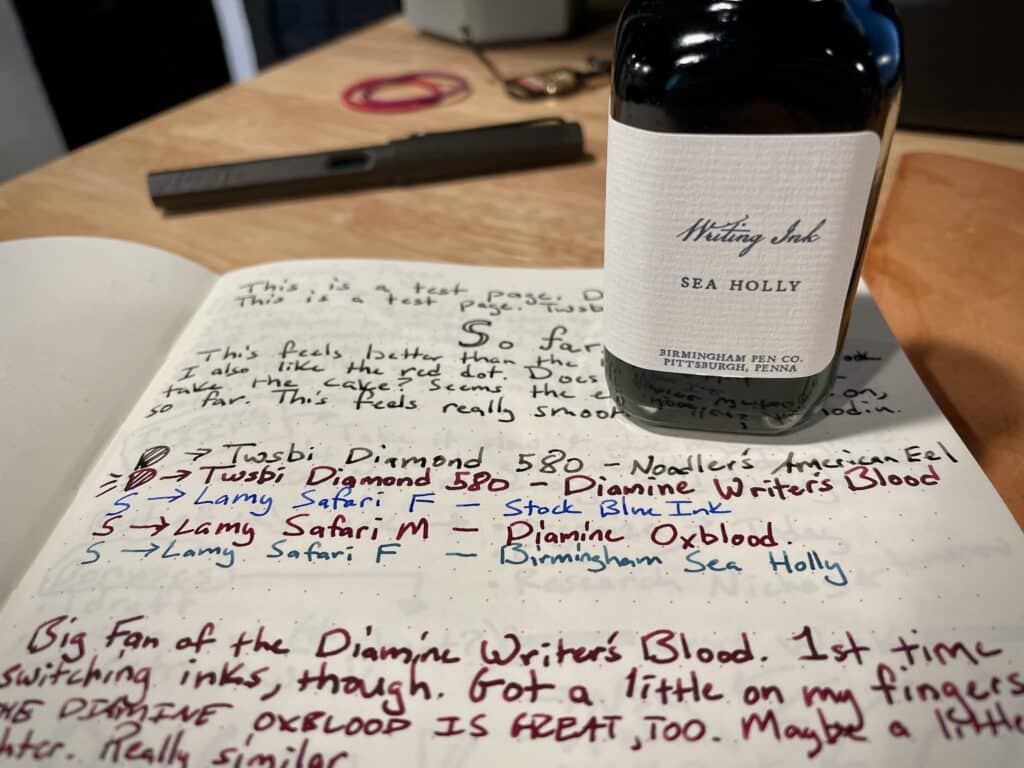 This is a test page. D
This is a test page. Twsb
So far,
This feels better than the
I also like the red dot. Does
take the cake? Seems the on,
so far. This feels really smoot
D → Twsbi Diamond 580 - Noodler's American Eel
D → Twsbi Diamond 580 - Diamine Writer's Blood
S → Lamy Safari F - Stock Blue Ink
S → Lamy Safari M - Diamine Oxblood.
S → Lamy Safari F - Birmingham Sea Holly
Big Fan of the Diamine Writer's Blood. 1st time
switching inks, though. Got a little on my fingers
HE DIAMINE OXBLOOD IS GREAT, TOO. Maybe a little
hter. Really similar
Writing Ink
SEA HOLLY
BIRMINGHAM PEN CO.
PITTSBURGH, PENNA